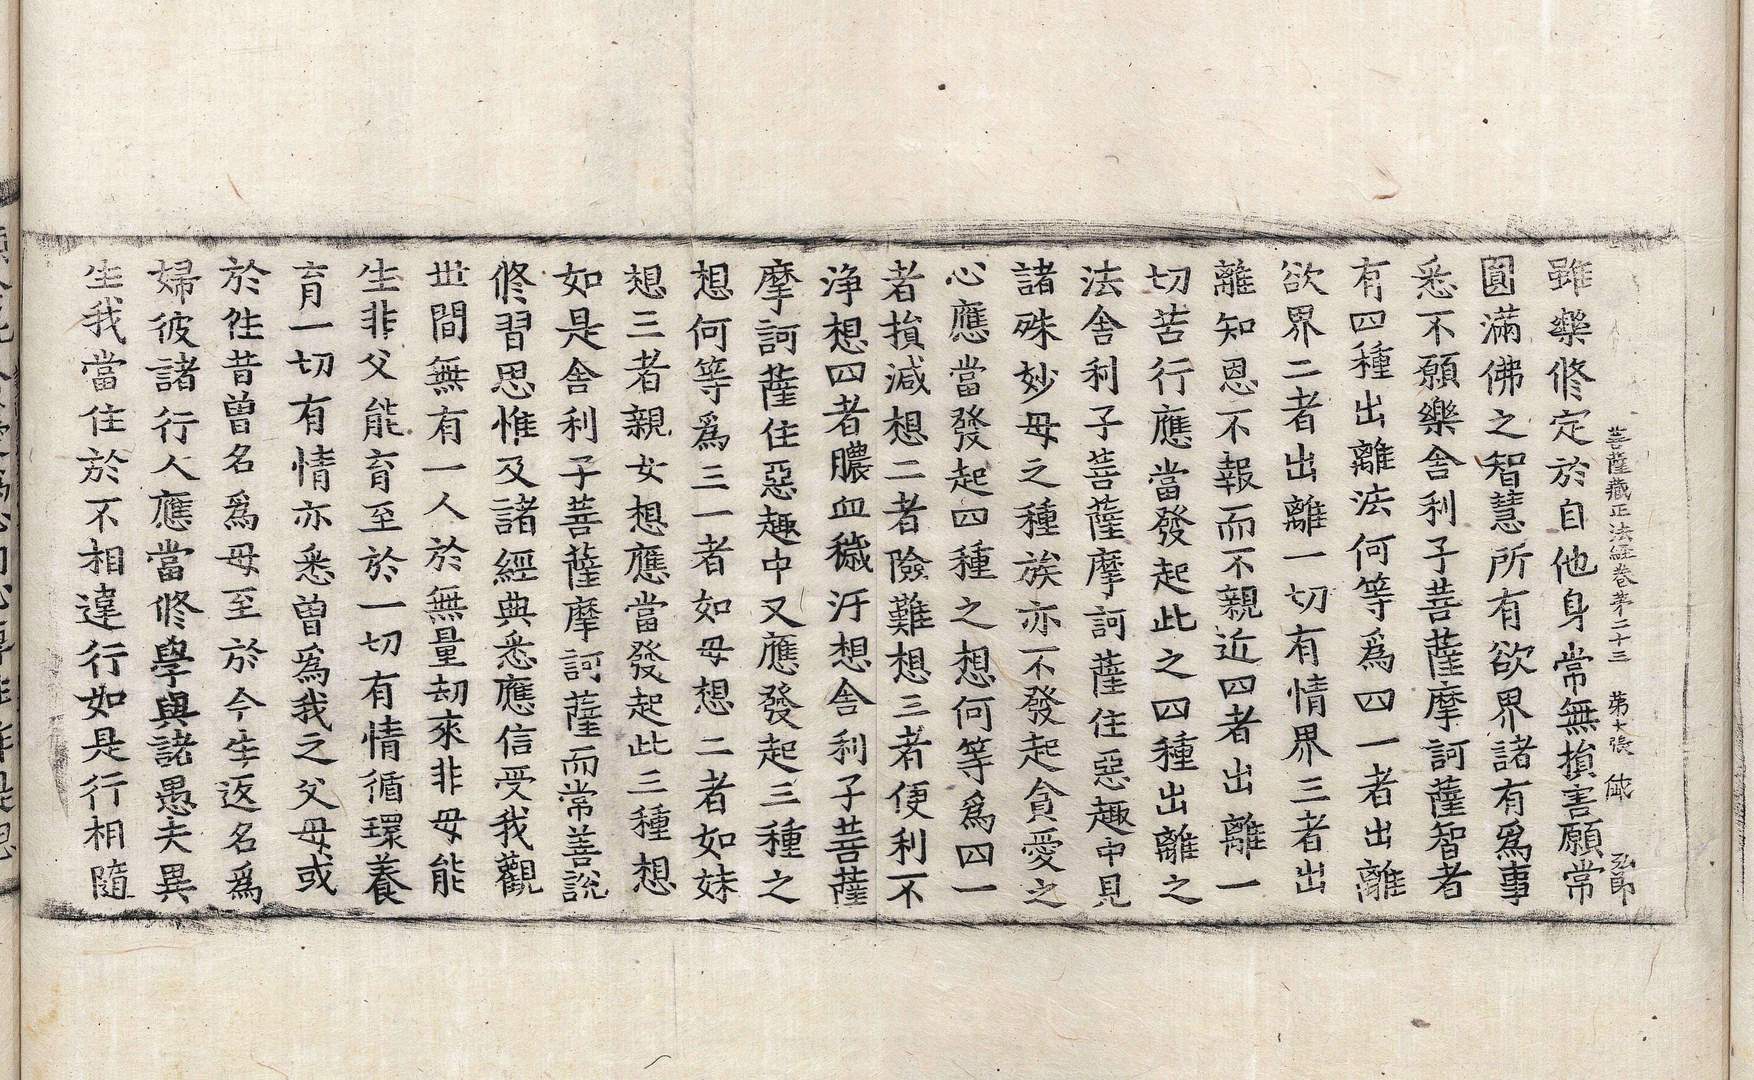 菩薩藏正法經卷苐二十三 苐十張 弘昂
雖樂修定於自他身常無損害願常
圓滿佛之智慧所有欲界諸有爲事
悉不願樂舍利子菩薩摩訶薩智者
有四種出離法何等爲四一者出離
欲界二者出離一切有情界三者出
離知恩不報而不親近四者出離一
切苦行應當發起此之四種出離之
法舍利子菩薩摩訶薩住惡趣中見
諸殊妙母之種族亦不發起貪愛之
心應當發起四種之想何等爲四一
者損減想二者險難想三者便利不
淨想四者膿血穢汙想舍利子菩薩
摩訶薩住惡趣中又應發起三種之
想何等爲三一者如母想二者如妹
想三者親女想應當發起此三種想
如是舍利子菩薩摩訶薩而常善說
修習思惟及諸經典悉應信受我觀
世間無有一人於無量劫來非母能
生非父能育至於一切有情循環養
育一切有情亦悉曾爲我之父母或
於往昔曾名爲母至於今生返名爲
婦彼諸行人應當修學與諸愚夫異
生我當住於不相違行如是行相隨